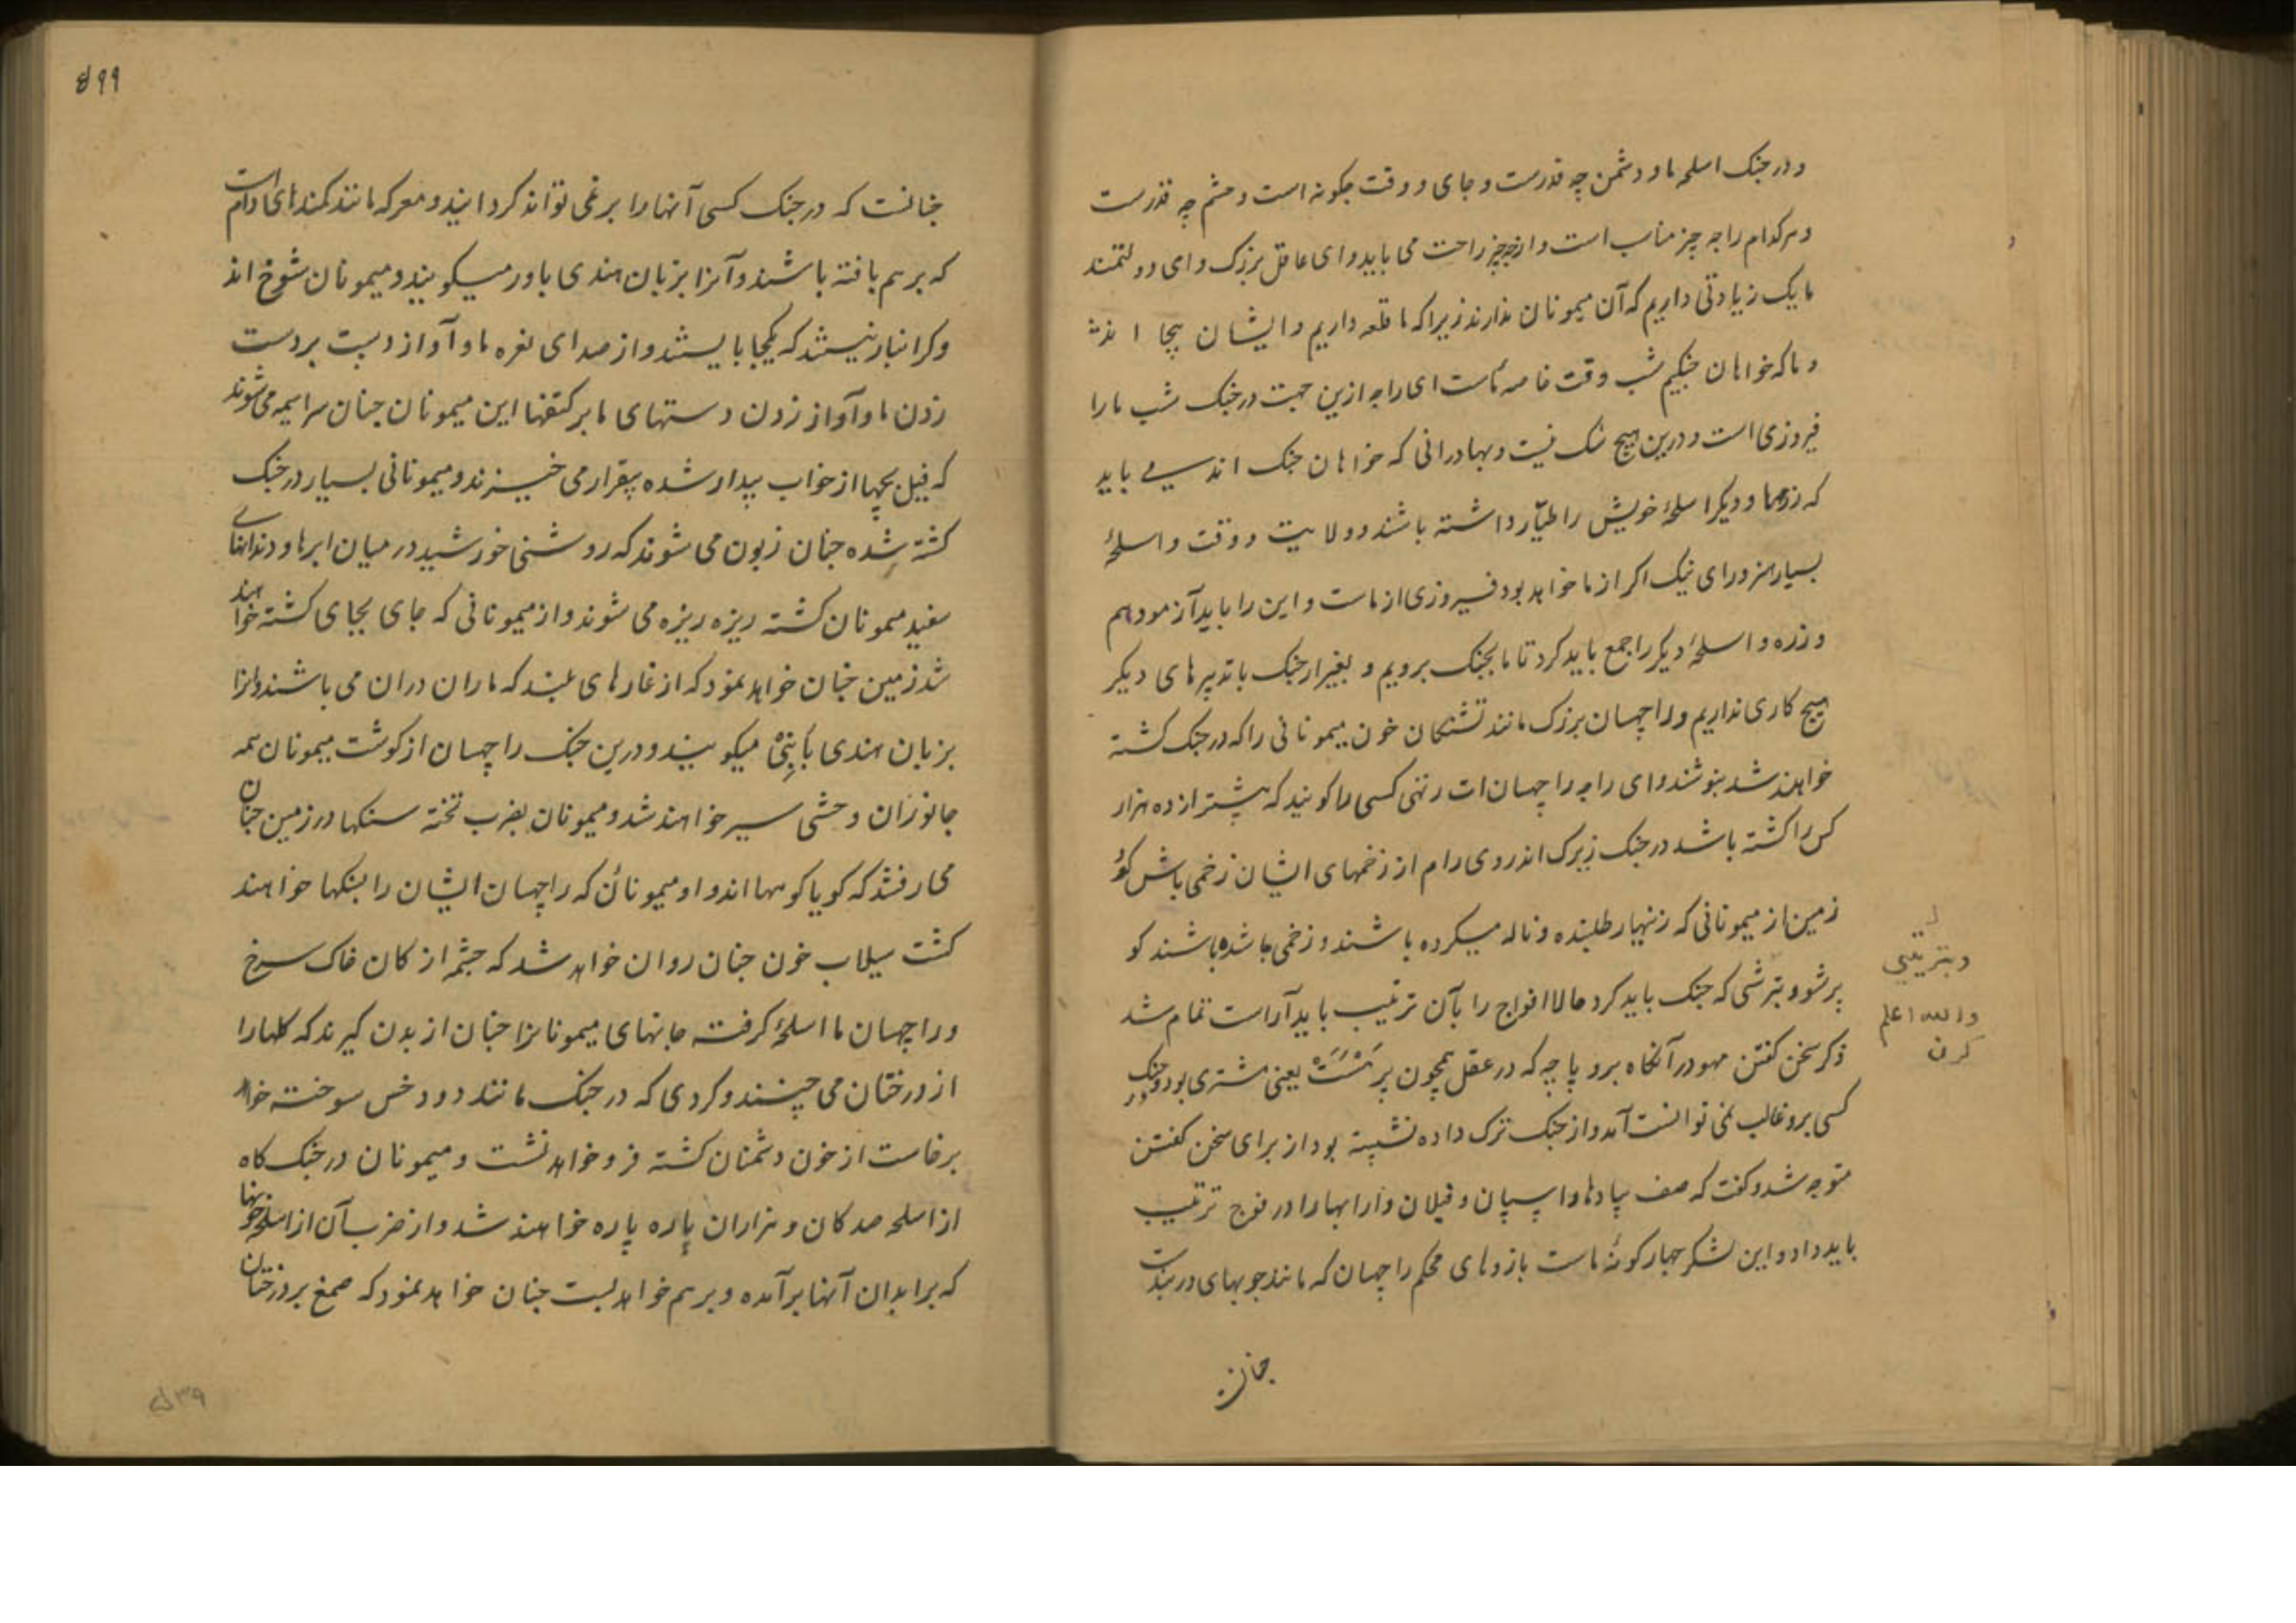 و در جنک اسلحه ما و دشمن چه قدرست و جای و وقت چکونه است و حشم چه قدرست
و هرکدام را چه چیز مناسب است و از چه چیز راحت می یابید و ای عاقل بزرک و ای دولتمند
ما یک زیادتی داریم که آن میمونان ندارند زیرا که ما قلعه داریم و ایشان بیجا اند
و ما که خواهان جنکیم شب وقت خاصه ماست ای راجه ازین جهت در جنک شب ما را
فیروزی است و درین هیچ شک نیست و بهادرانی که خواهان جنک اند می باید
که زرهها و دیکر اسلحۀ خویش را طیّار داشته باشند و ولایت و وقت و اسلحۀ
بسیار هنر و رای نیک اکر از ما خواهد بود فیروزی از ماست و این را باید آزمود هم
و زره و اسلحۀ دیکر را جمع باید کرد تا ما بجنک برویم و بغیر از جنک با تدبیرهای دیکر
هیچ کاری نداریم و راچهسان بزرک مانند تشنکان خون میمونانی را که در جنک کشته
خواهند شد بنوشند و ای راجه راچهسان ات رتهی کسی را کویند که بیشتر از ده هزار
کس را کشته باشد در جنک زیرک اند روی رام از زخمهای ایشان زخمی باش کو
زمین از میمونانی که زنهار طلبنده و ناله میکرده باشند و زخمی ها شده باشند کو
پر شو و بترشی که جنک باید کرد حالا افواج را بآن ترتیب باید آراست تمام شد
ذکر سخن کفتن مهودر آنکاه بروپاچه که در عقل همچون برهسپت یعنی مشتری بود و در جنک
کسی برو غالب نمی توانست آمد و از جنک ترک داده نشسته بود از برای سخن کفتن
متوجه شد و کفت که صف پیادها و اسپان و فیلان و ارابها را در فوج ترتیب
باید داد و این لشکر چهار کونه ماست بازوهای محکم راچهسان که مانند چوبهای دربندست
چنانست
وبتریتی
والله اعلم
کرن
۵۹۹
چنانست که در جنک کسی آنها را بر نمی تواند کردانید و معرکه مانند کمندهای دام است
که بر هم بافته باشند و آنرا بزبان هندی باور میکویند و میمونان شوخ اند
و کرانبار نیستند که یکجا بایستند و از صدای نعره ما و آواز دست بر دست
زدن ما و آواز زدن دستهای ما بر کتفها این میمونان چنان سراسیمه می شوند
که فیل بچها از خواب بیدار شده بیقرار می خیزند و میمونانی بسیار در جنک
کشته شده چنان زبون می شوند که روشنی خورشید در میان ابرها و دندانهای
سفید میمونان کشته ریزه ریزه می شوند و از میمونانی که جای بجای کشته خواهند
شد زمین چنان خواهد نمود که از غارهای بلند که ماران دران می باشند و آنرا
بزبان هندی بانبی میکویند و درین جنک راچهسان از کوشت میمونان همه
جانوران وحشی سیر خواهند شد و میمونان بضرب تخته سنکها در زمین چنان
می رفتند که کویا کوهها اند و میمونان که راچهسان ایشان را بسنکها خواهند
کشت سیلاب خون چنان روان خواهد شد که چشمه از کان خاک سرخ
و راچهسان ما اسلحه کرفته جانهای میمونانرا چنان از بدن کیرند که کلها را
از درختان می چینند و کردی که در جنک مانند دود خس سوخته خواهد
برخاست از خون دشمنان کشته فرو خواهد نشست و میمونان در جنک کاه
از اسلحه صدکان و هزاران پاره پاره خواهند شد و از ضرب آن از اسلحه خونها
که بر ابدان آنها برآمده و بر هم خواهد بست چنان خواهد نمود که صمغ بر درختان
۵۳۹